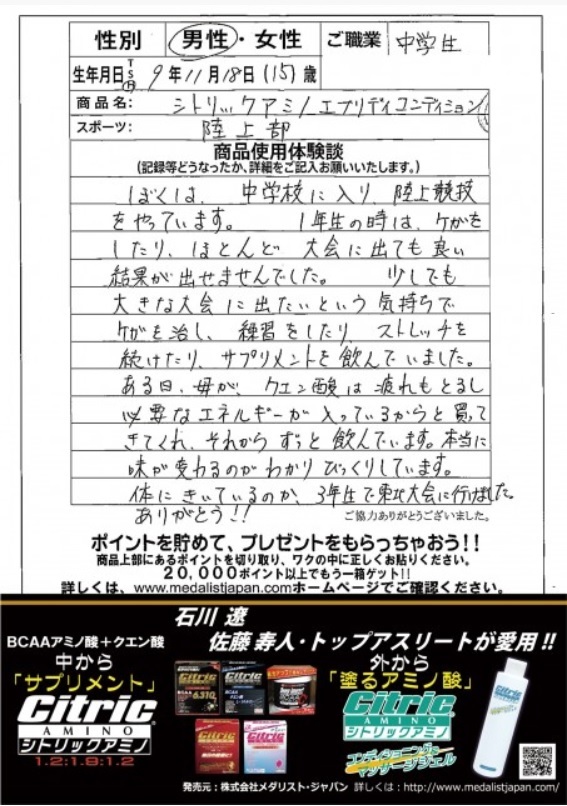 性別 男性・女性 ご職業 中学生
生年月日 T S H 9年11月18日(15)歳
商品名: シトリックアミノエブリディコンディション
スポーツ: 陸上部
商品使用体験談
(記録等どうなったか、詳細をご記入お願いいたします。)
ぼくは、中学校に入り、陸上競技
をやっています。 1年生の時は、ケガを
したり、ほとんど 大会に出ても良い
結果が出せませんでした。 少しでも
大きな大会に出たいという気持ちで
ケガを治し、練習をしたり、ストレッチを
続けたり、サプリメントを飲んでいました。
ある日、母が、クエン酸は疲れもとるし
必要なエネルギーが入っているからと買って
きてくれ、それからずっと飲んでいます。本当に
味が変わるのがわかりびっくりしています。
体にきいているのか、3年生で東北大会に行けました。
ありがとう!!
ご協力ありがとうございました。
ポイントを貯めて、プレゼントをもらっちゃおう!!
商品上部にあるポイントを切り取り、ワクの中に正しくお貼りください。
20,000ポイント以上でもう一箱ゲット!!
詳しくは、www.medalistjapan.comホームページでご確認ください。
石川 遼
佐藤 寿人・トップアスリートが愛用!!
BCAAアミノ酸+クエン酸
中から
「サプリメント」
Citric
AMINO
シトリックアミノ
1.2:1.9:1.2
外から
「塗るアミノ酸」
Citric
AMINO
シトリックアミノ
コンディショニング&
マッサージジェル
発売元:株式会社メダリスト・ジャパン 詳しくは:http://www.medalistjapan.com/